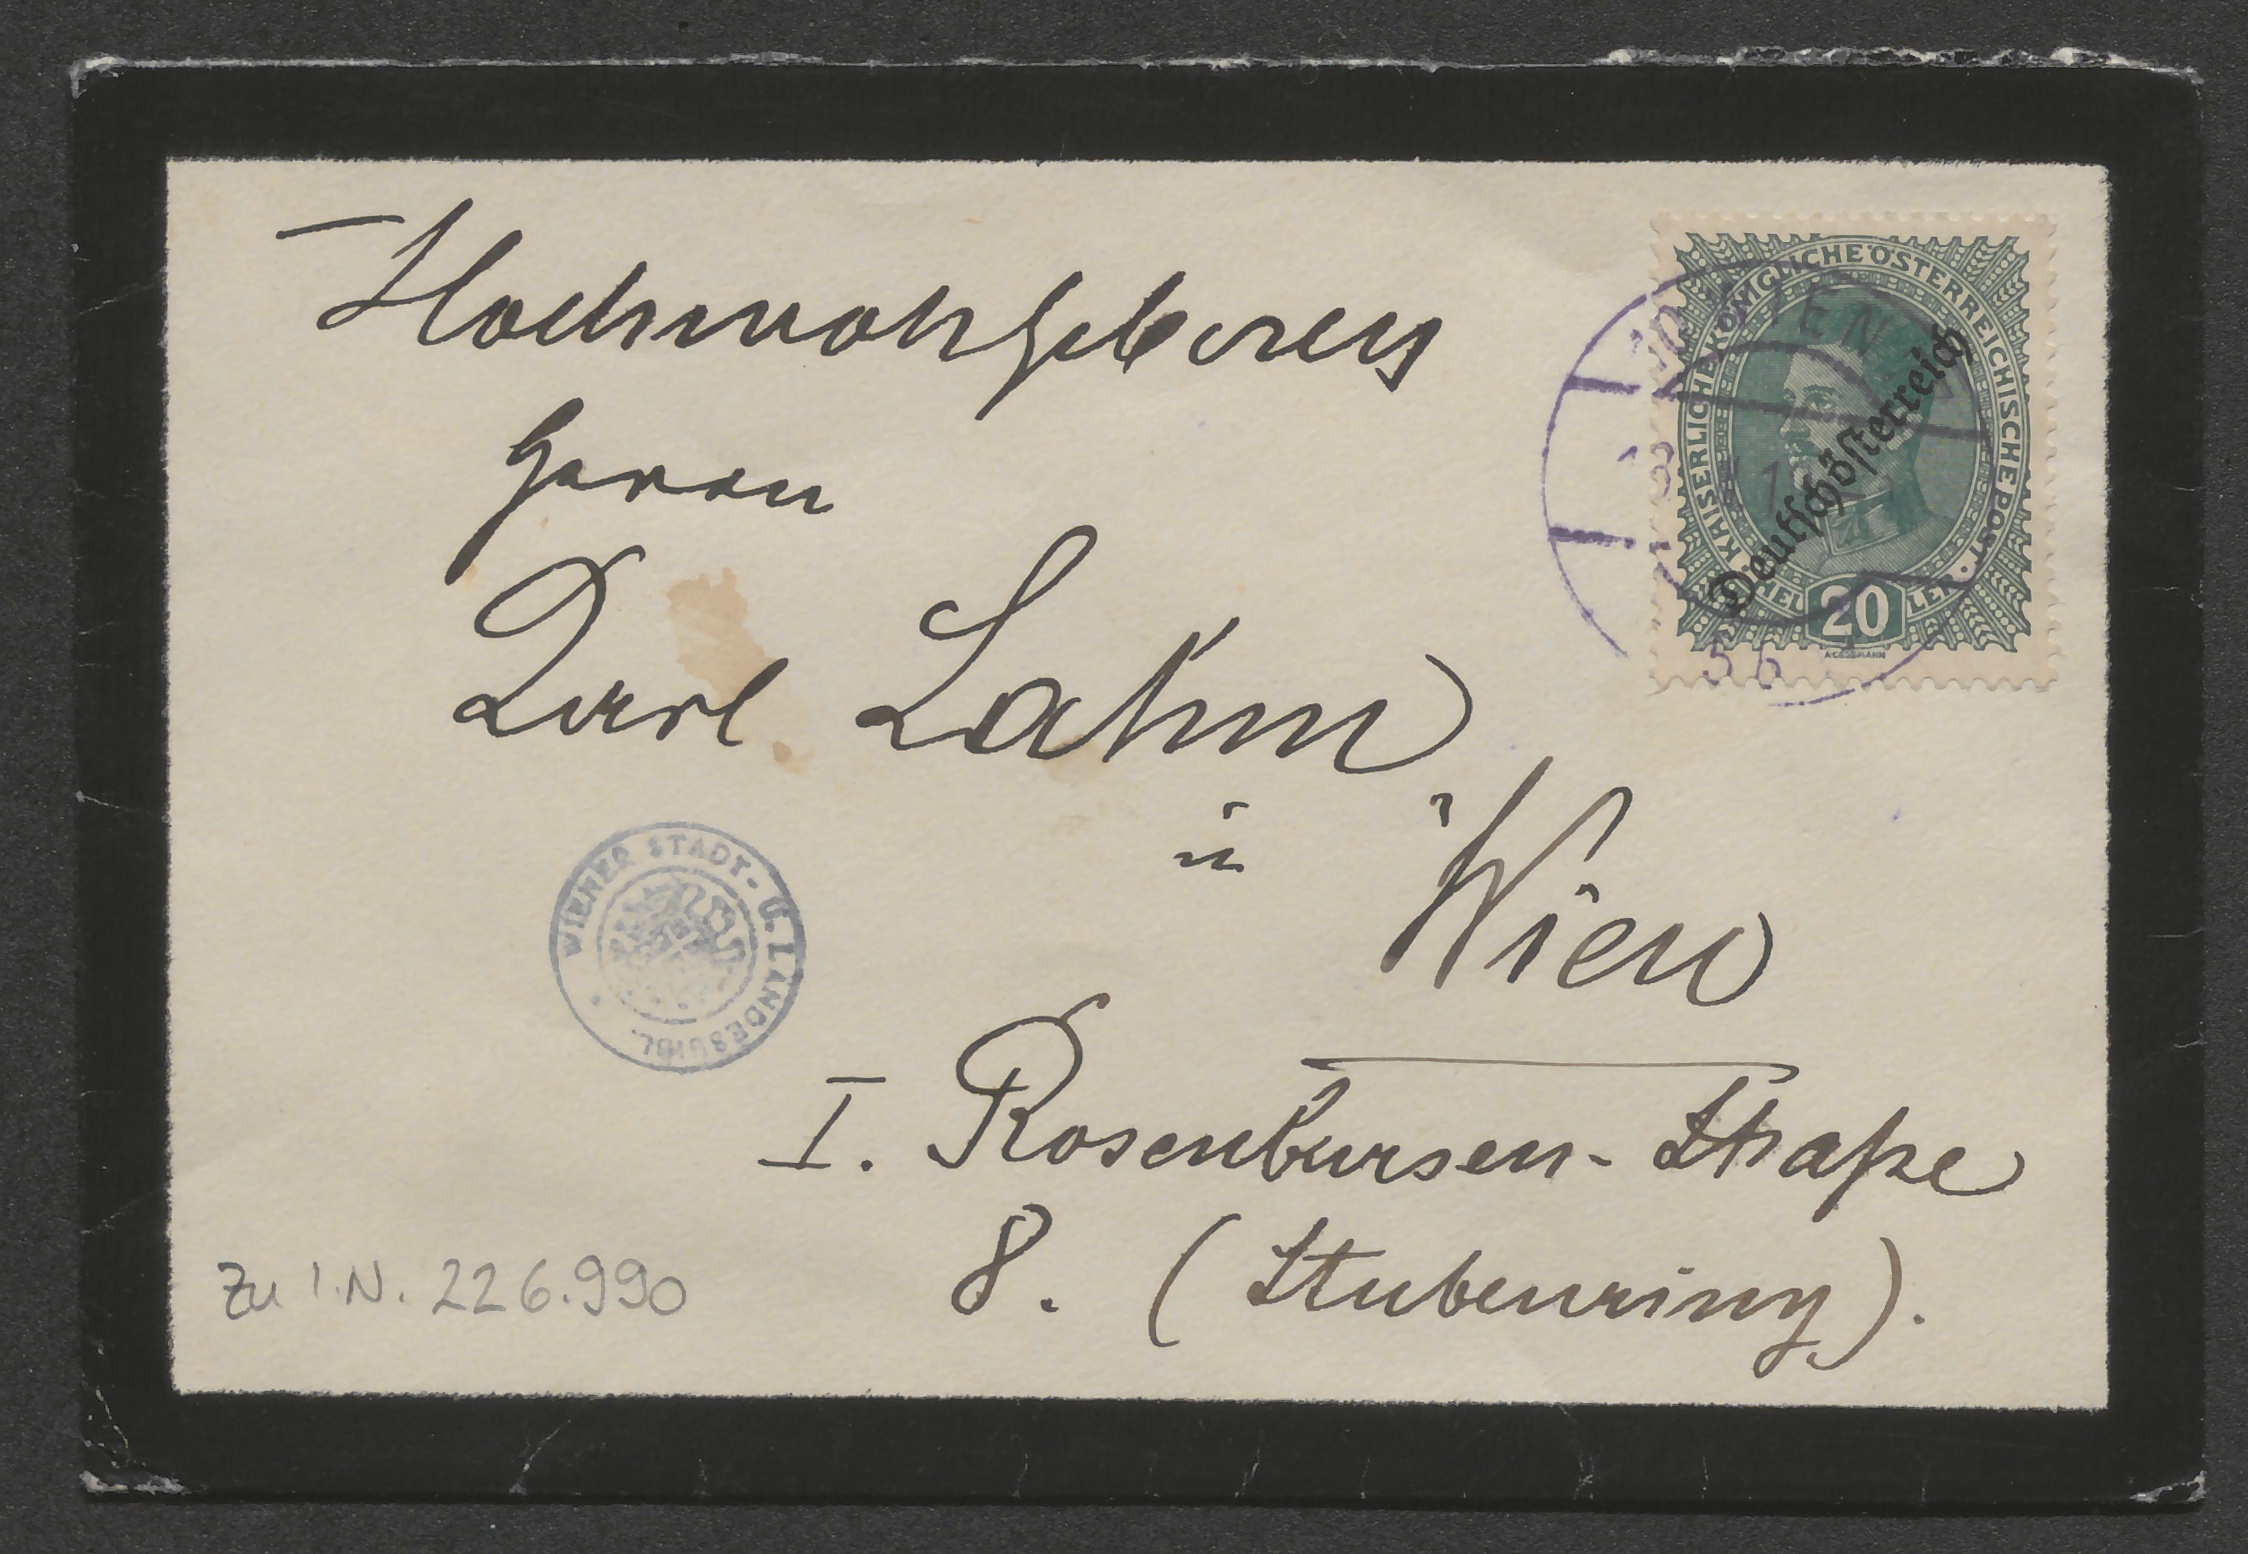 Hochwohlgeboren
Herrn
Karl Lahm
in Wien
I. Rosenbursen-Straße
8. (Stubenring).
Zu I.N. 226.990
WIENER STADT- U. LANDESBIBL.
KAISERLICHE KÖNIGLICHE ÖSTERREICHISCHE POST
Deutschösterreich
20
WIEN
56